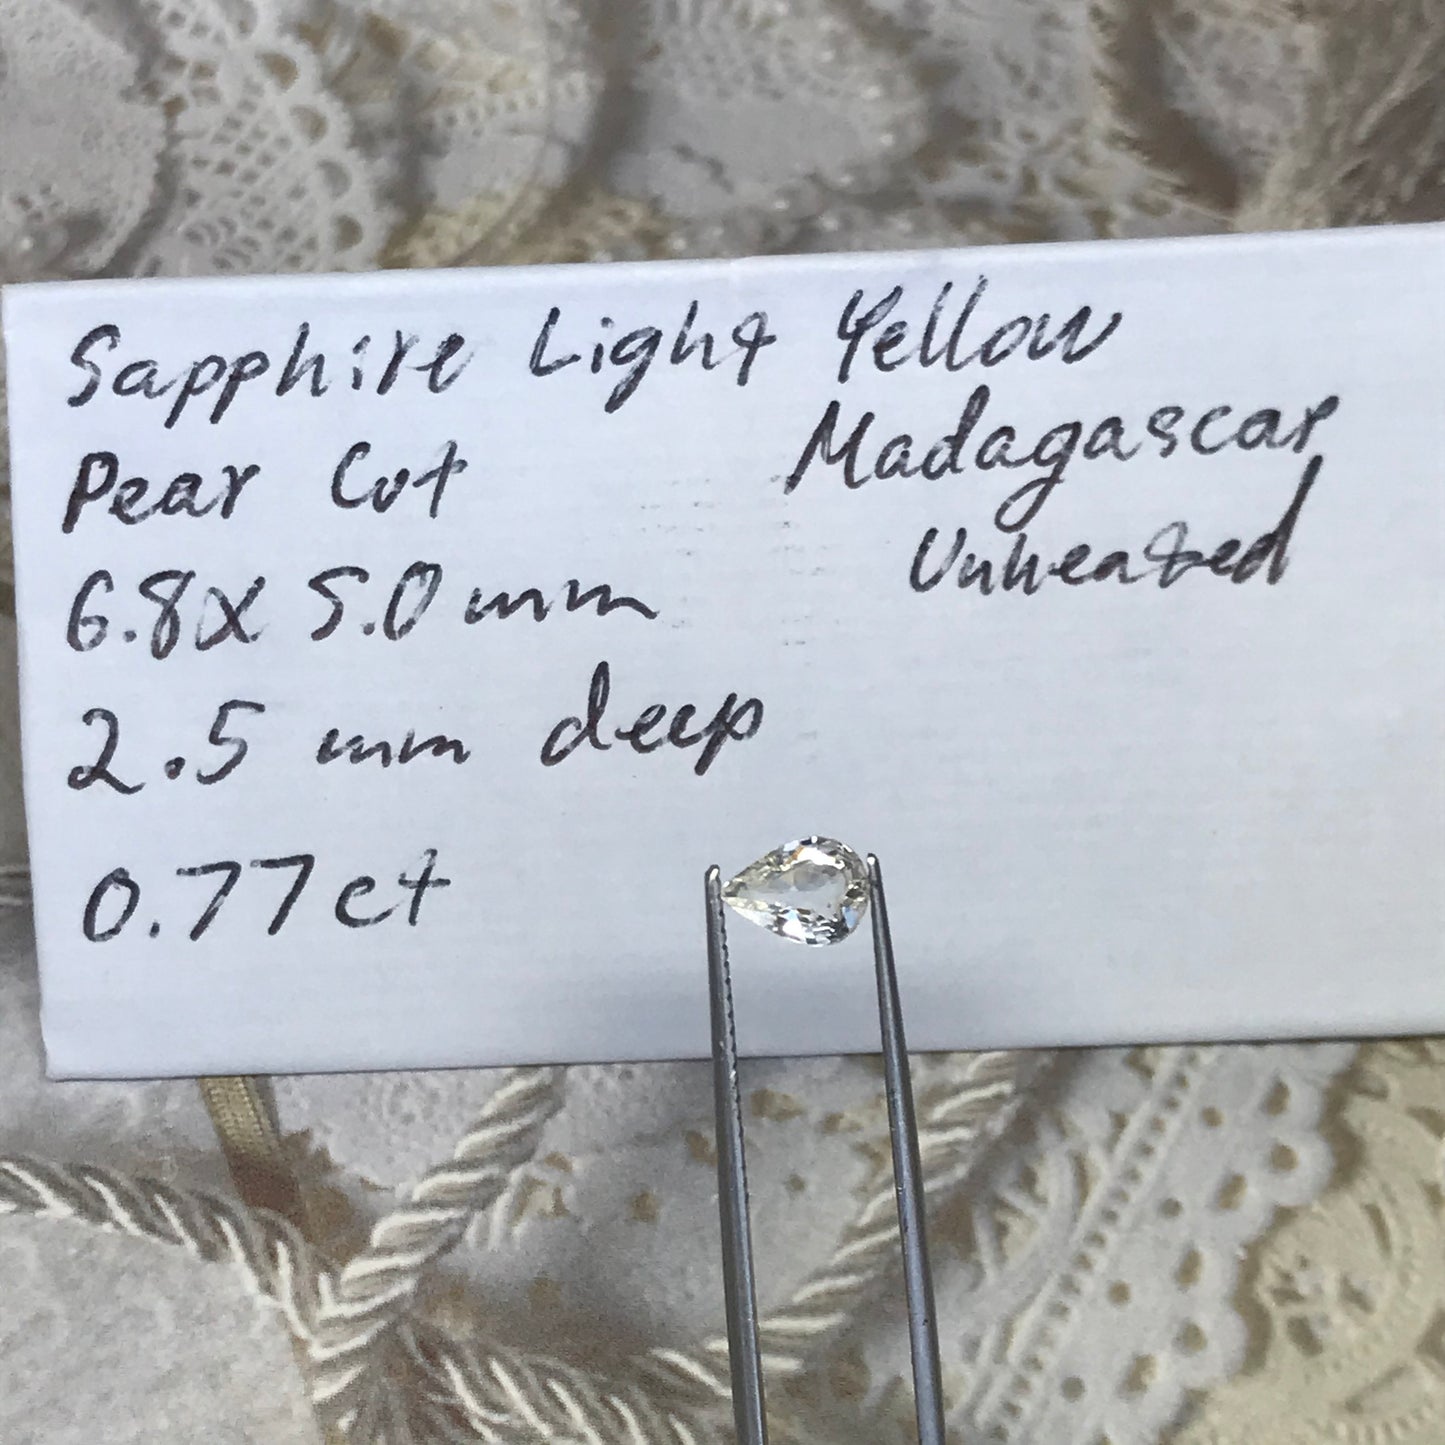 Sapphire Light Yellow
Pear Cut Madagascar
6.8x 5.0mm Unheated
2.5 mm deep
0.77ct